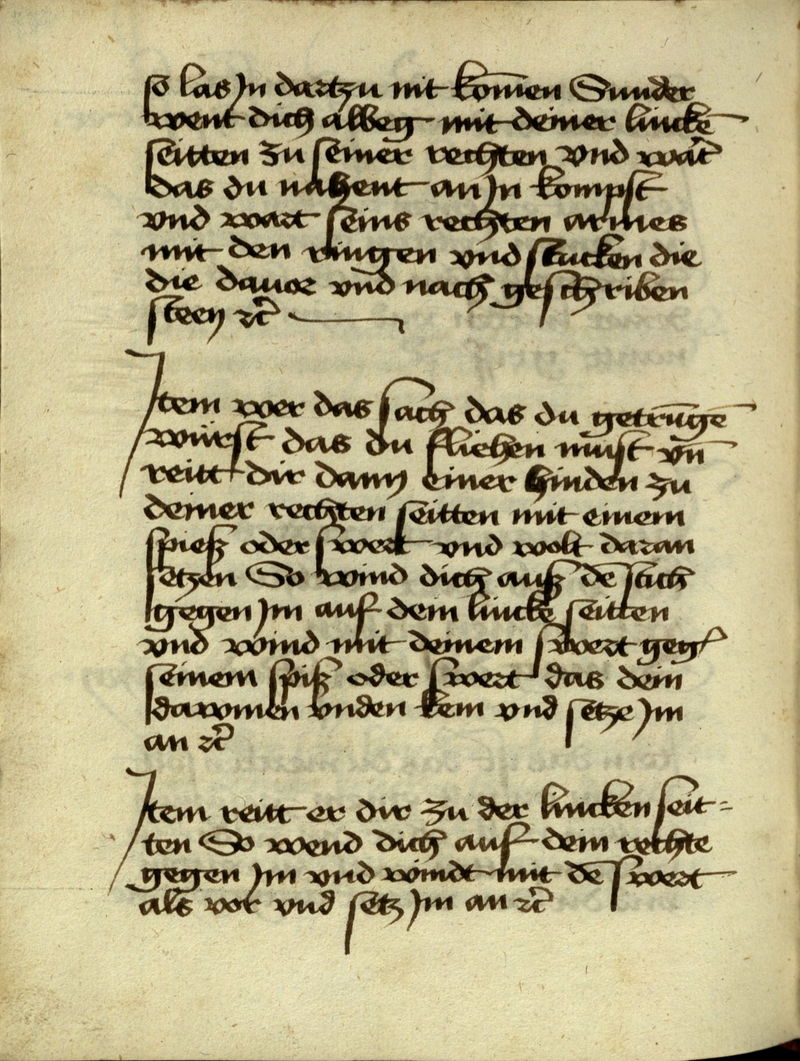 so las Jn dartzu nit kom̄en Sunder
went dich albeg mit deiner lincke̅
seitten zu seiner rechten vnd wart̾
das du nahent an Jn kompst
vnd wart seins rechten armes
mit den ringen vnd stucken die
die dauor vnd nach geschriben
steen ꝛc̃
Jtem wer das sach das du getru̅ge̅
wurst das du fliehen must vn̅
reitt dir dann einer hinden zu
deiner rechten seitten mit einem
spieß oder swert vnd wolt daran
setzen So wind dich auß de̅ stich
gegen Jm auf dein lincke̅ seitten
vnd wind mit deinem swert geg̾
seinem spiß oder swert das dein
dawmen vnden kem vnd setze Jm
an ꝛc̃
Jtem reitt er dir zu der lincken seit=
ten So wend dich auf dein rechte
gegen Jm vnd windt mit de̅ swert
als vor vnd setz Jm an ꝛc̃